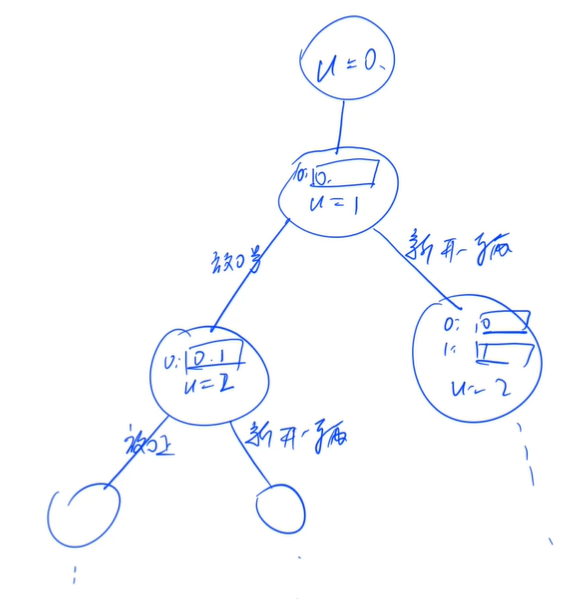 u=0.
0: 0.
u=1
放0号
新开一辆
0: 0.1
u=2
0: 0
1: 1
u=2
放0上
新开一辆